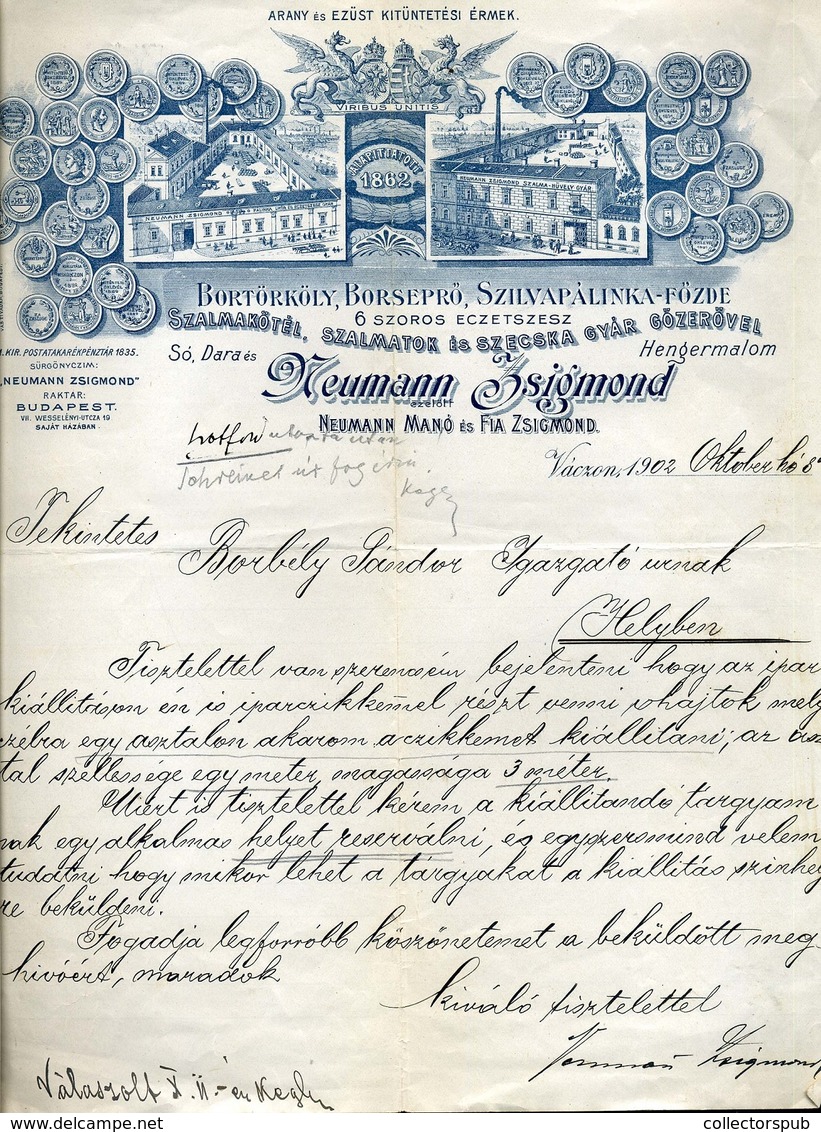 ARANY és EZÜST KITÜNTETÉSI ÉRMEK.
VIRIBUS UNITIS
ALAPITTATOTT
1862
NEUMANN ZSIGMOND
NEUMANN ZSIGMOND SZALMA-HÜVELY GYÁR
BORTÖRKÖLY, BORSEPRŐ, SZILVAPÁLINKA-FŐZDE
6 SZOROS ECZETSZESZ
SZALMAKÖTÉL, SZALMATOK ÉS SZECSKA GYÁR GŐZERŐVEL
Só, Dara és Hengermalom
Neumann Zsigmond
ezelőtt
NEUMANN MANÓ ÉS FIA ZSIGMOND.
M. KIR. POSTATAKARÉKPÉNZTÁR 1835.
SÜRGÖNYCZIM:
„NEUMANN ZSIGMOND"
RAKTÁR:
BUDAPEST.
VII. WESSELÉNYI-UTCZA 19
SAJÁT HÁZÁBAN.
Váczon, 1902 Oktober hó 8
Tekintetes
Borbély Sándor Igazgató urnak
Helyben
Tisztelettel van szerencsém bejelenteni hogy az ipar
kiállitáson én is iparczikkemmel részt venni ohajtok mely
czélra egy asztalon akarom a czikkemet kiállitani; az asz
tal szellessége egy meter, magassága 3 méter.
Miért is tisztelettel kérem a kiállitandó tárgyam
nak egy alkalmas helyet reserválni, es egyszersmind velem
tudatni hogy mikor lehet a tárgyakat a kiállitás szinhey
re beküldeni.
Fogadja legforróbb köszönetemet a beküldött meg-
hivóért, maradok
kiváló tisztelettel
Neumann Zsigmond
Válaszolt X. 11.-én
collectorspub